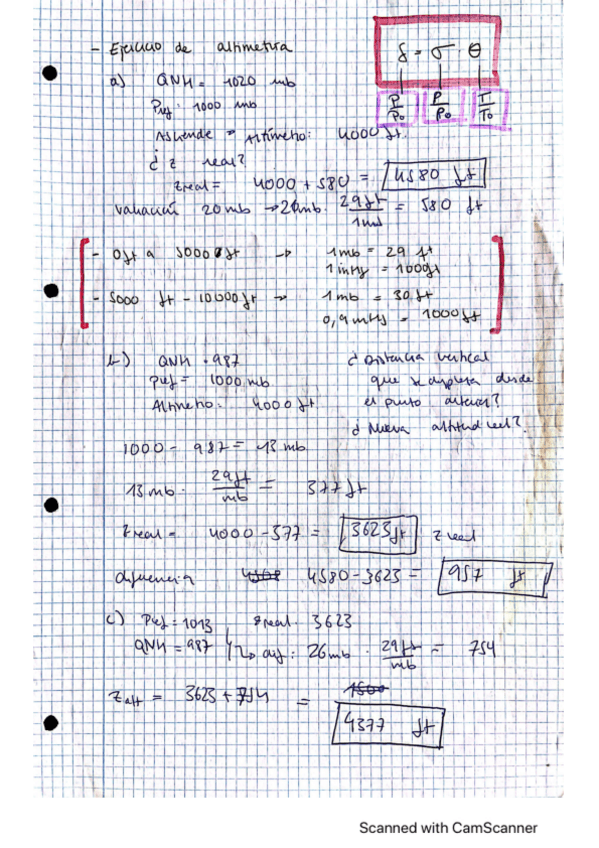 - Ejercicio de altimetría
δ = σ · θ
P/P₀ P/P₀ T/T₀
a) QNH = 1020 mb
Pref: 1000 mb
Asciende → Altímetro: 4000 ft.
¿ z real?
zreal = 4000 + 580 = 4580 ft
Variación 20 mb → 20mb · 29 ft/1mb = 580 ft
- 0 ft a 5000 ft → 1 mb = 29 ft
1 inHg = 1000ft
- 5000 ft - 10000 ft → 1 mb = 30 ft
0,9 inHg = 1000 ft
b) QNH = 987
Pref = 1000 mb
Altímetro: 4000 ft
¿ Distancia vertical
que se desplaza desde
el punto anterior?
¿ Nueva altitud real?
1000 - 987 = 13 mb
13 mb · 29 ft/mb = 377 ft
zreal = 4000 - 377 = 3623 ft z real
diferencia 4580 - 3623 = 957 ft
c) Pref = 1013 zreal = 3623
QNH = 987 ↳ dif: 26mb · 29 ft/mb = 754
zalt = 3623 + 754 = 1500
4377 ft
Scanned with CamScanner